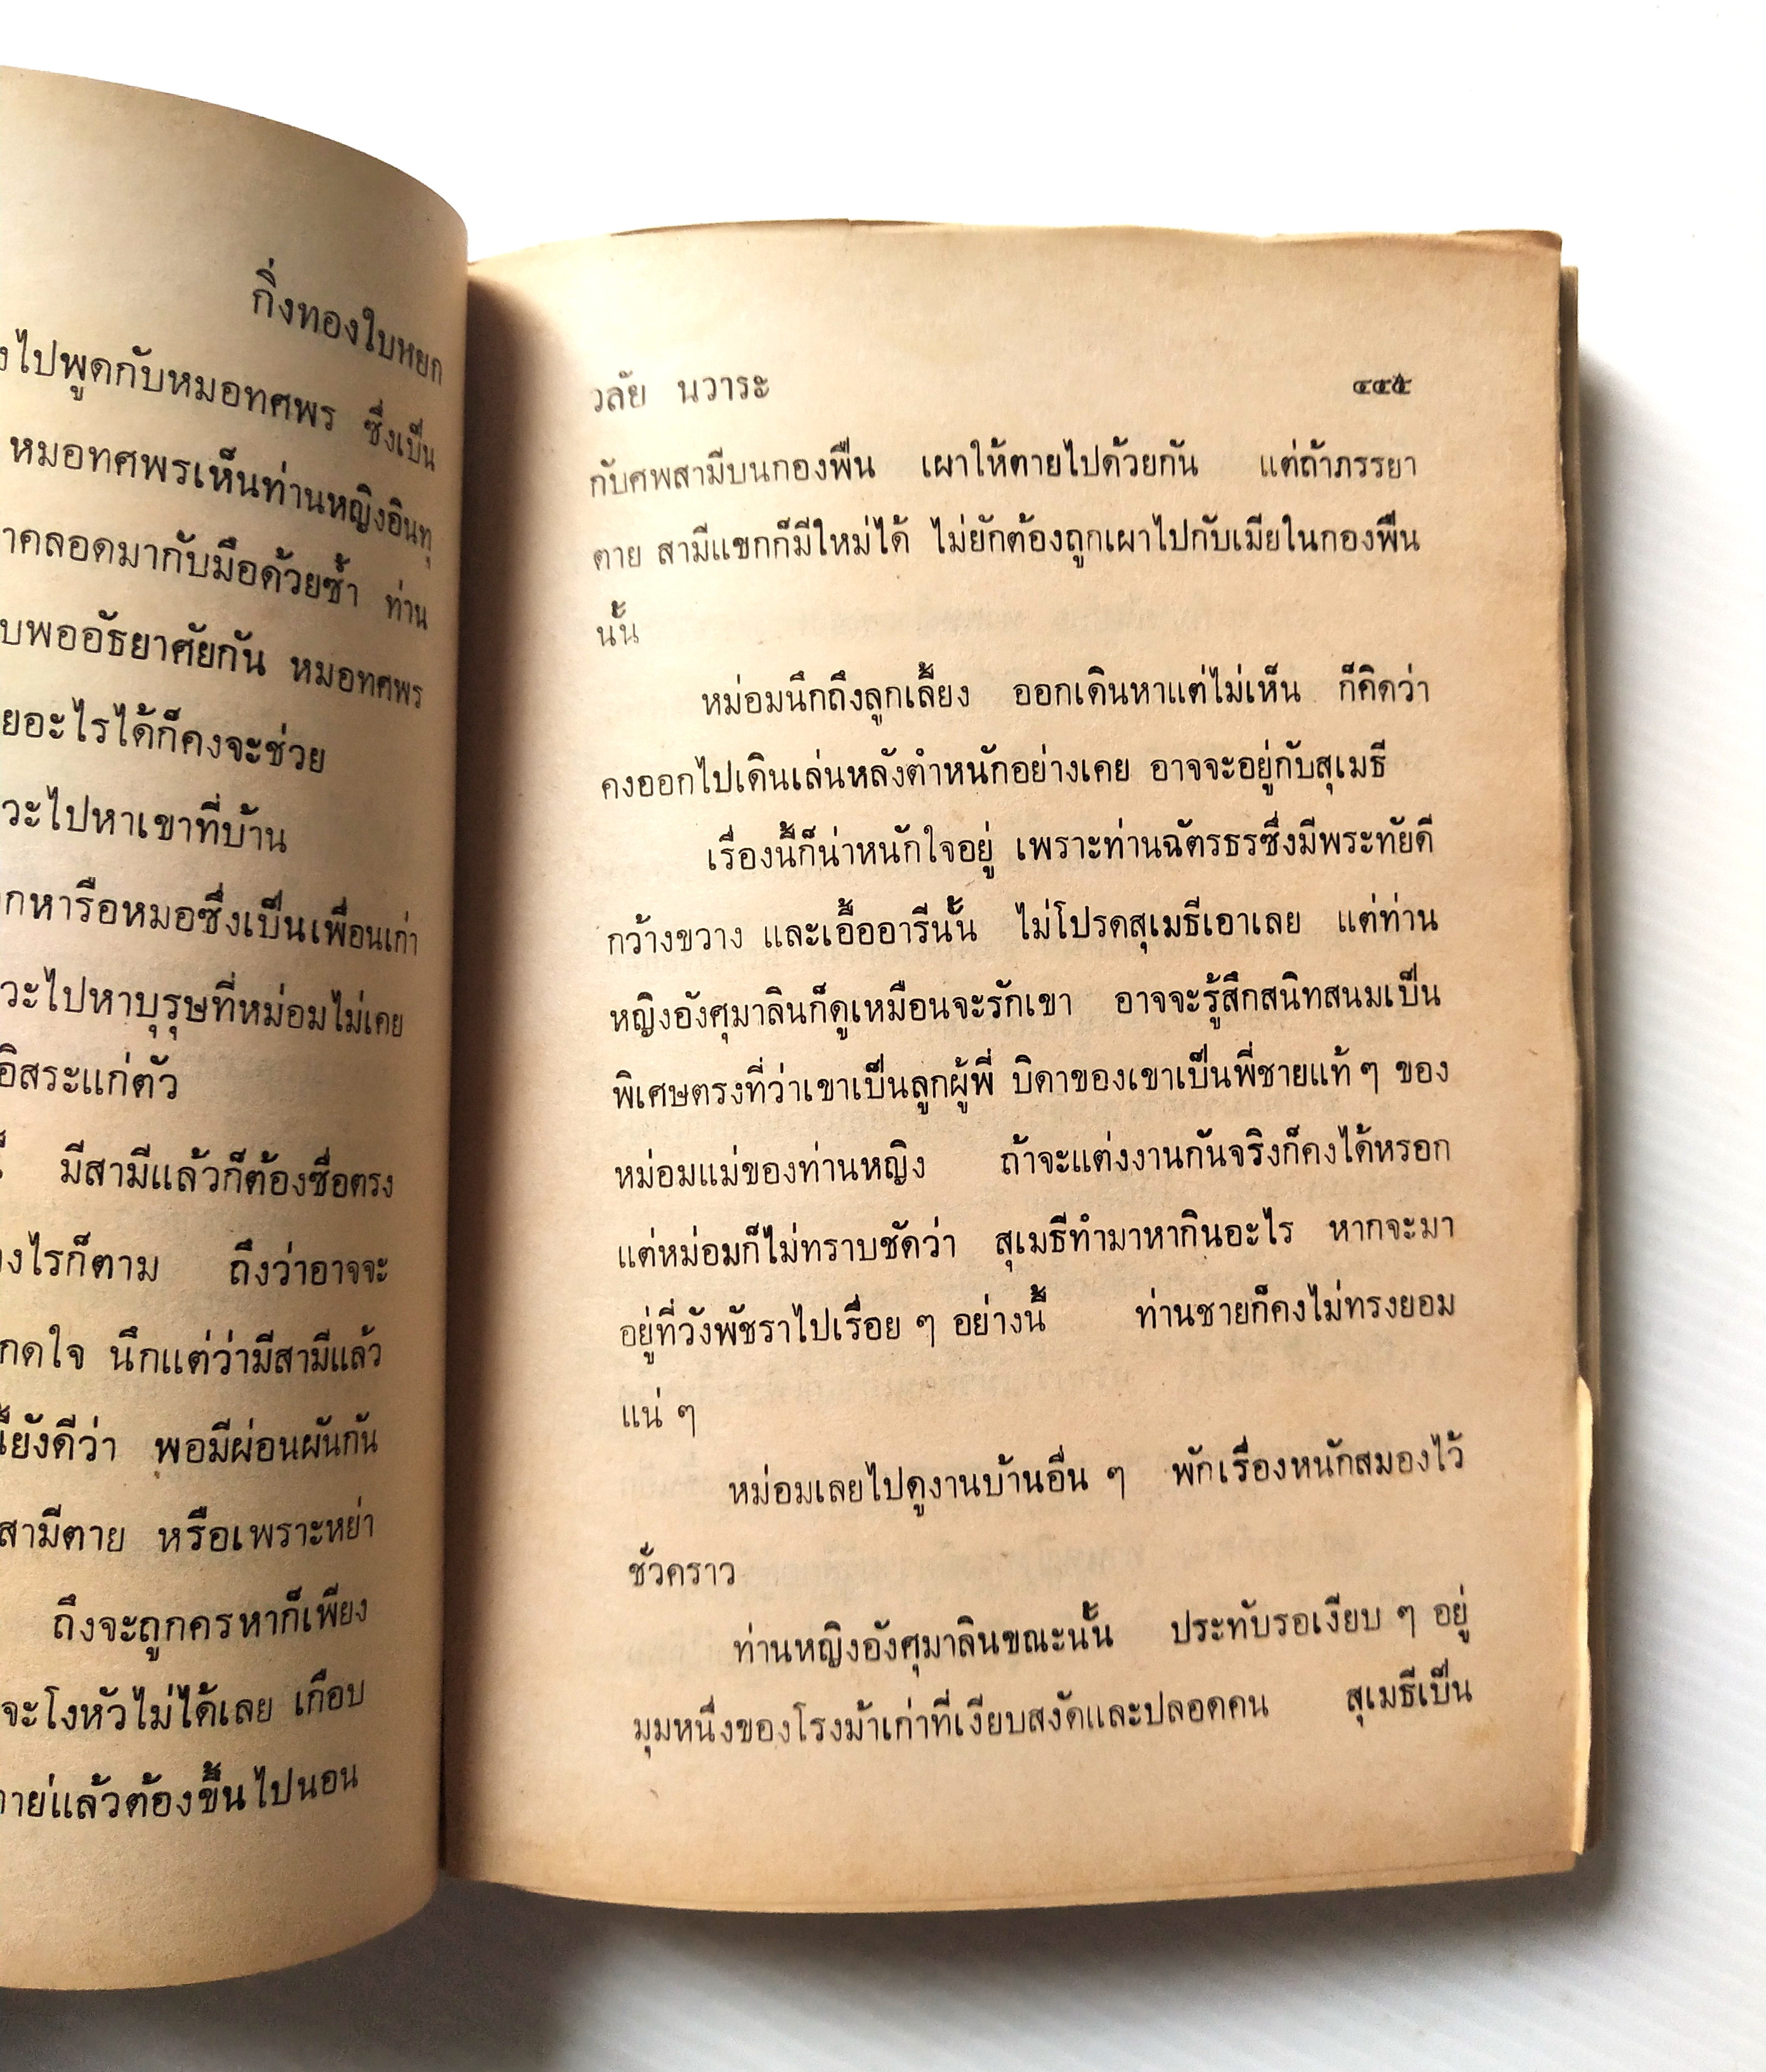 กิ่งทองใบหยก
ไปพูดกับหมอทศพร ซึ่งเป็น
หมอทศพรเห็นท่านหญิงอินทุ
คลอดมากับมือด้วยซ้ำ ท่าน
พออัธยาศัยกัน หมอทศพร
อะไรได้ก็คงจะช่วย
วะไปหาเขาที่บ้าน
หารือหมอซึ่งเป็นเพื่อนเก่า
วะไปหาบุรุษที่หม่อมไม่เคย
อิสระแก่ตัว
มีสามีแล้วก็ต้องซื่อตรง
ไรก็ตาม ถึงว่าอาจจะ
กดใจ นึกแต่ว่ามีสามีแล้ว
ยังดีว่า พอมีผ่อนผันกัน
สามีตาย หรือเพราะหย่า
ถึงจะถูกครหาก็เพียง
จะโงหัวไม่ได้เลย เกือบ
แล้วต้องขึ้นไปนอน
วลัย นวาระ
กับศพสามีบนกองฟืน เผาให้ตายไปด้วยกัน แต่ถ้าภรรยา
ตาย สามีแขกก็มีใหม่ได้ ไม่ยักต้องถูกเผาไปกับเมียในกองฟืน
นั้น
หม่อมนึกถึงลูกเลี้ยง ออกเดินหาแต่ไม่เห็น ก็คิดว่า
คงออกไปเดินเล่นหลังตำหนักอย่างเคย อาจจะอยู่กับสุเมธี
เรื่องนี้ก็น่าหนักใจอยู่ เพราะท่านฉัตรธรซึ่งมีพระทัยดี
กว้างขวาง และเอื้ออารีนั้น ไม่โปรดสุเมธีเอาเลย แต่ท่าน
หญิงอังศุมาลินก็ดูเหมือนจะรักเขา อาจจะรู้สึกสนิทสนมเป็น
พิเศษตรงที่ว่าเขาเป็นลูกผู้พี่ บิดาของเขาเป็นพี่ชายแท้ ๆ ของ
หม่อมแม่ของท่านหญิง ถ้าจะแต่งงานกันจริงก็คงได้หรอก
แต่หม่อมก็ไม่ทราบชัดว่า สุเมธีทำมาหากินอะไร หากจะมา
อยู่ที่วังพัชราไปเรื่อย ๆ อย่างนี้ ท่านชายก็คงไม่ทรงยอม
แน่ ๆ
หม่อมเลยไปดูงานบ้านอื่น ๆ พักเรื่องหนักสมองไว้
ชั่วคราว
ท่านหญิงอังศุมาลินขณะนั้น ประทับรอเงียบ ๆ อยู่
มุมหนึ่งของโรงม้าเก่าที่เงียบสงัดและปลอดคน สุเมธีเป็น